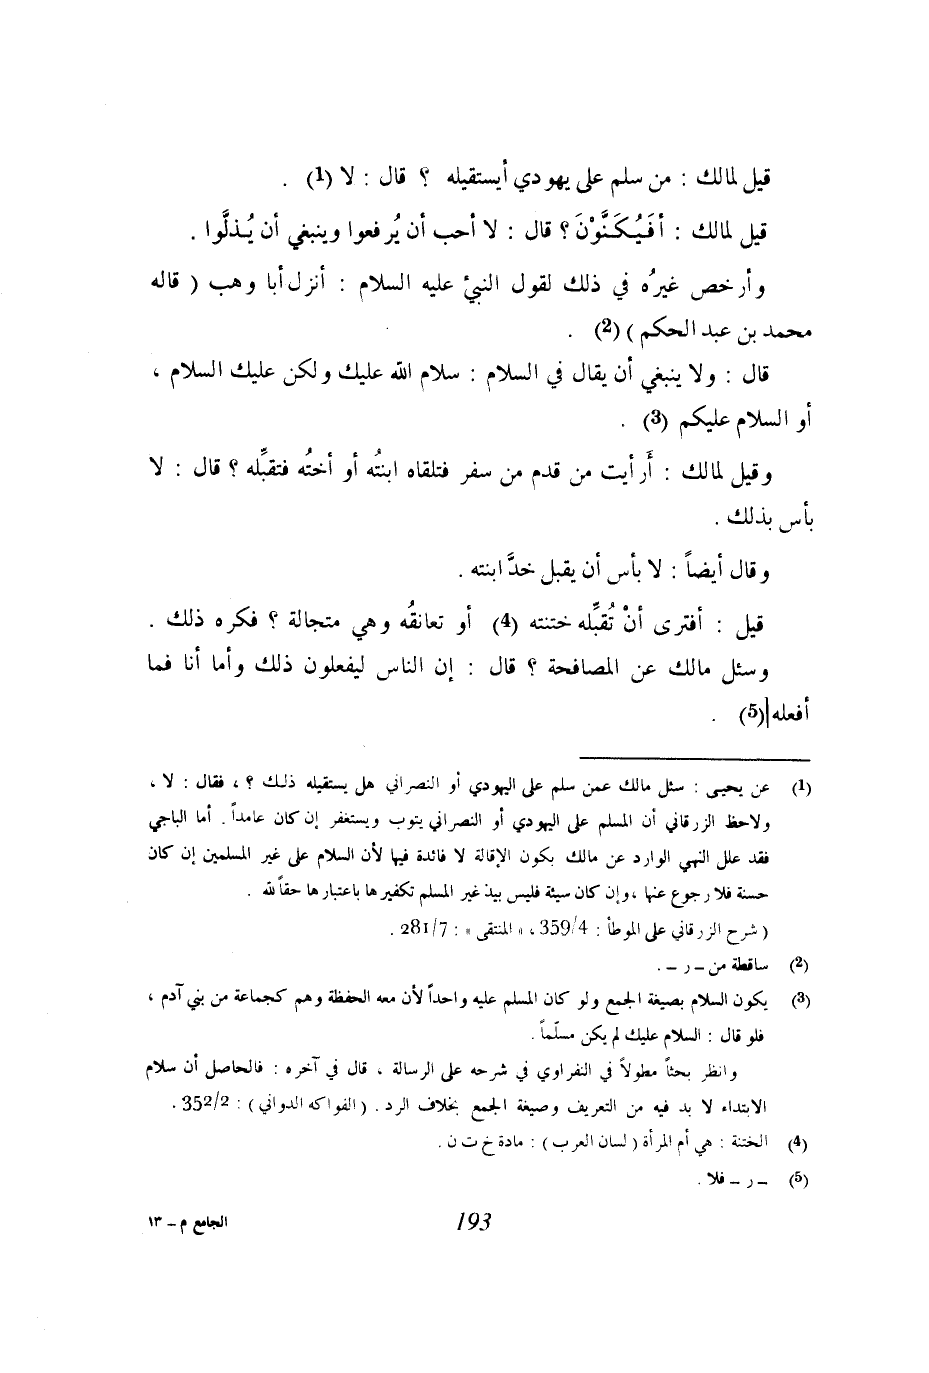 قيل لمالك : من سلم على يهودي أيستقيله ؟ قال : لا (1) .
قيل لمالك : أَفَيُكَنَّوْنَ ؟ قال : لا أحب أن يُرفعوا وينبغي أن يُذلَّوا .
وأرخص غيرُه في ذلك لقول النبيّ عليه السلام : أنزل أبا وهب ( قاله
محمد بن عبد الحكم ) (2) .
قال : ولا ينبغي أن يقال في السلام : سلام الله عليك ولكن عليك السلام ،
أو السلام عليكم (3) .
وقيل لمالك : أَرأيت من قدم من سفر فتلقاه ابنتُه أو أختُه فتقبِّله ؟ قال : لا
بأس بذلك .
وقال أيضاً : لا بأس أن يقبل خدَّ ابنته .
قيل : أفترى أنْ تُقبِّله ختنته (4) أو تعانقُه وهي متجالة ؟ فكره ذلك .
وسئل مالك عن المصافحة ؟ قال : إن الناس ليفعلون ذلك وأما أنا فما
أفعله (5) .
(1) عن يحيى : سئل مالك عمن سلم على اليهودي أو النصراني هل يستقيله ذلك ؟ ، فقال : لا ،
ولاحظ الزرقاني أن المسلم على اليهودي أو النصراني يتوب ويستغفر إن كان عامداً . أما الباجي
فقد علل النهي الوارد عن مالك بكون الإقالة لا فائدة فيها لأن السلام على غير المسلمين إن كان
حسنة فلا رجوع عنها ، وإن كان سيئة فليس بيد غير المسلم تكفيرها باعتبارها حقاً لله .
( شرح الزرقاني على الموطأ : 359/4 ، « المنتقى » : 281/7 .
(2) ساقطة من – ر – .
(3) يكون السلام بصيغة الجمع ولو كان المسلم عليه واحداً لأن معه الحفظة وهم كجماعة من بني آدم ،
فلو قال : السلام عليك لم يكن مسلّماً .
وانظر بحثاً مطولاً في النفراوي في شرحه على الرسالة ، قال في آخره : فالحاصل أن سلام
الابتداء لا بد فيه من التعريف وصيغة الجمع بخلاف الرد . ( الفواكه الدواني ) : 352/2 .
(4) الختنة : هي أم المرأة ( لسان العرب ) : مادة خ ت ن .
(5) – ر – فلا .
193
الجامع م – ١٣